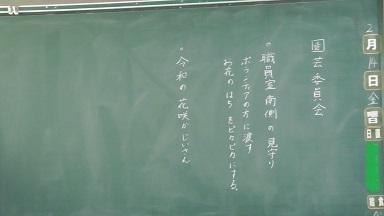 2月14日金
習
日直
園芸委員会
。職員室南側の見守り
ボランティアの方に渡す
お花のはちをピカピカにする。
。令和の花咲かじいさん